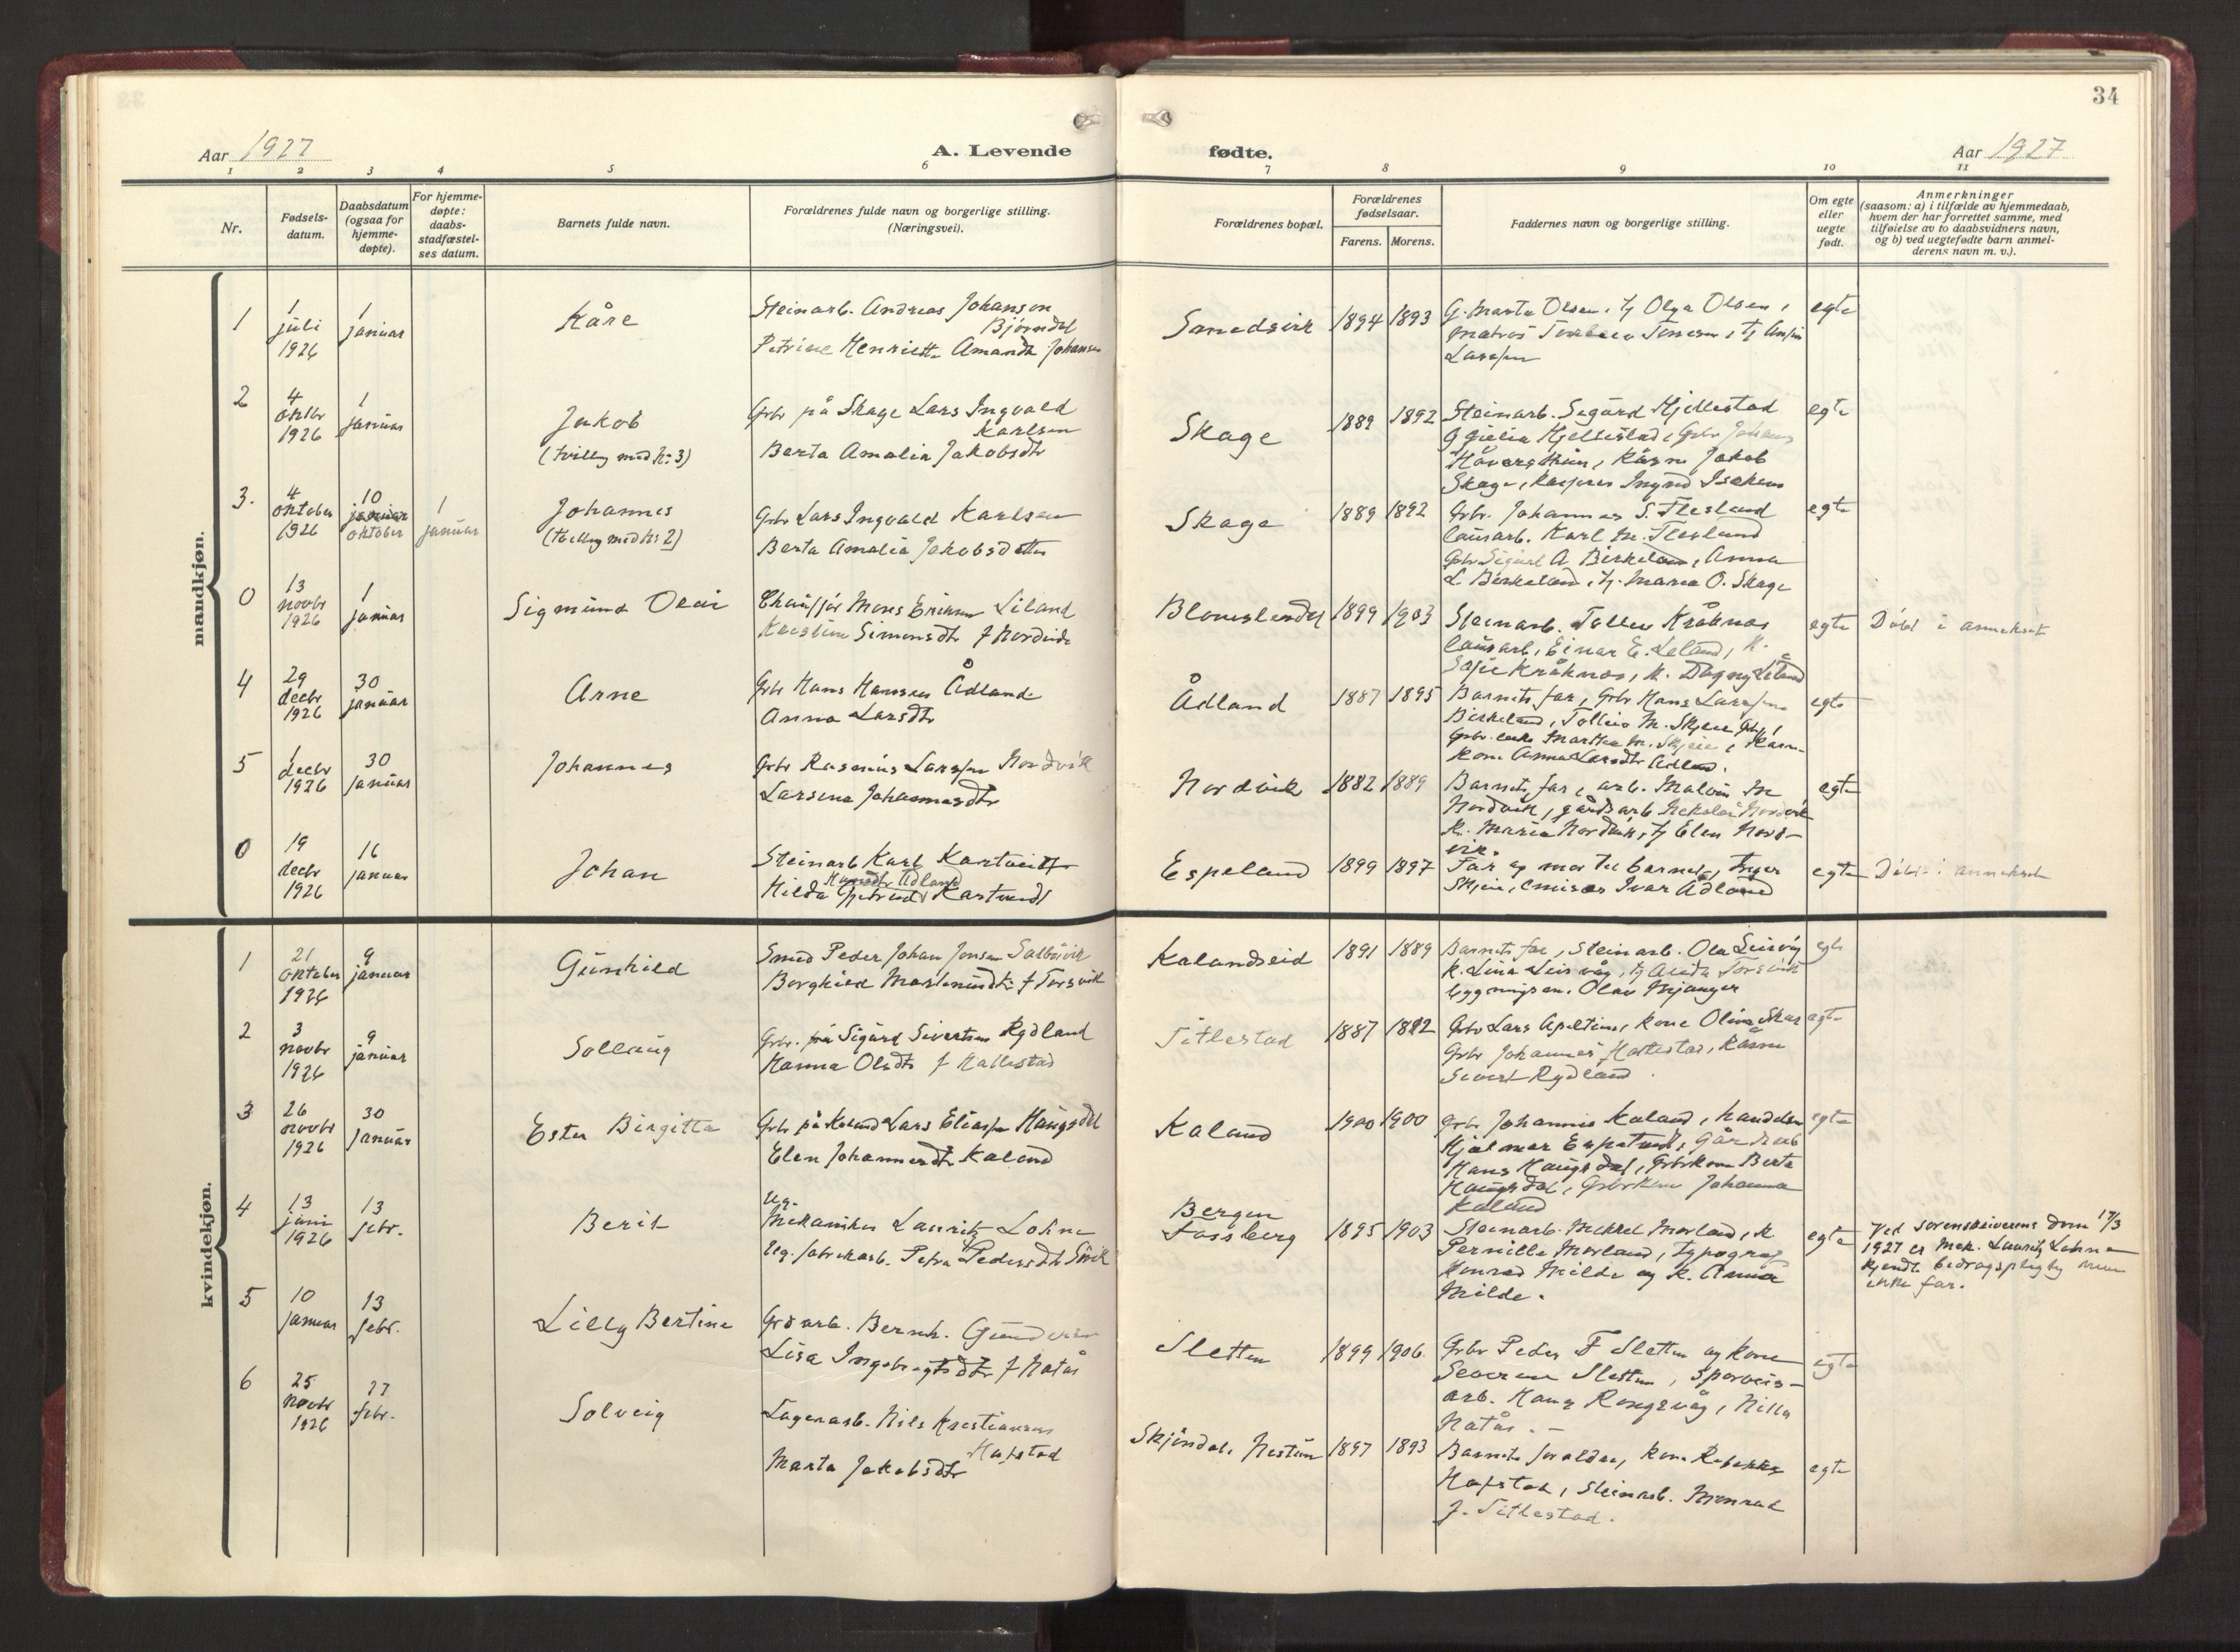 34
Aar 1927
A. Levende
fødte.
Aar 1927
1 2 3 4 5 6 7 8 9 10 11
Nr.
Fødsels-
datum.
Daabsdatum
(ogsaa for
hjemme-
døpte).
For hjemme-
døpte:
daabs-
stadfæstel-
ses datum.
Barnets fulde navn.
Forældrenes fulde navn og borgerlige stilling.
(Næringsvei).
Forældrenes bopæl.
Forældrenes
fødselsaar.
Farens. Morens.
Faddernes navn og borgerlige stilling.
Om egte
eller
uegte
født.
Anmerkninger
(saasom: a) i tilfælde av hjemmedaab,
hvem der har forrettet samme, med
tilføielse av to daabsvidners navn,
og b) ved uegtefødte barn anmel-
derens navn m. v.).
mandkjøn.
1
1
juli
1926
1
januar
Kåre
Steinarb. Andreas Johanson
Bjørndal
Petrine Henriette Amanda Johansen
Smedsvik
1894 1893
G. Marta Olsen, tj Olga Olsen,
matros
egte
2
4
oktbr
1926
1
januar
Jakob
(tvilling med nr 3)
Gbr på Skage Lars Ingvald
Karlsen
Berta Amalia Jakobsdtr
Skage
1889 1892
Steinarb. Sigurd Hjellestad
Hjellestad, Gbr Johans
Jakob
Skage, Ingvald Isaksen
egte
3.
4
oktober
1926
10
januar
oktober
1
januar
Johannes
(tvilling med nr 2)
Gbr Lars Ingvald Karlsen
Berta Amalia Jakobsdatter
Skage
1889 1892
Gbr. Johannes S. Flesland
Karl M. Flesland
Gbr Sigurd A. Birkeland, Anna
L. Birkeland, tj. Maria O. Skage
egte
0
13
novbr
1926
1
januar
Sigmund Olai
Chauffør Mons Eriksen Liland
Kristine Simonsdtr f Nordvik
Blomsterdal
1899 1903
Steinarb. Tollev Kråknes
Einar E. Liland, k.
Sofie Kråknes, k. Dagny Liland
egte
Døbt i annekset
4
29
decbr
1926
30
januar
Arne
Gbr Hans Hansen Ådland
Anna Larsdtr
Ådland
1887 1895
Barnets far, Gbr Hans Larsen
Birkeland, M. Skjeie
Martha M. Skjeie,
kone Anna Larsdtr Ådland.
egte
5
1
decbr
1926
30
januar
Johannes
Gbr Rasmus Larsen Nordvik
Larsina Johannesdtr
Nordvik
1882 1889
Barnets far, arb. Malvin M
Nordvik, gårdsarb Nikolai Nordvik
k. Maria Nordvik, tj Elen Nord-
vik.
egte
0
19
decbr
1926
16
januar
Johan
Steinarb Karl Kartveit
Hansdtr Ådland
Hilda Kartveit
Espeland
1899 1897
Far og mor til barnet, Inger
Skjeie, Ivar Ådland
egte
Døbt i annekset
kvindekjøn.
1
21
oktober
1926
9
januar
Gunhild
Smed Peder Johan Jonsen Salbuvik
Borghild Martinusdtr f Torsvik
Kalandseid
1891 1889
Barnets far, Steinarb. Ola Leirvåg
k. Lina Leirvåg, tj Alida Torsvik
Olav Mjanger
egte
2
3
novbr
1926
9
januar
Sollaug
Gbr. på Sigurd Sivertsen Rydland
Hanna Olsdtr f Hallestad
Titlestad
1887 1882
Gbr Lars Apeltun, kone Olina Skar
Gbr Johannes
Sivert Rydland.
egte
3
26
novbr
1926
30
januar
Ester Birgitte
Gbr på Kaland Lars Eliasen Haugsdal
Elen Johannesdtr Kaland
Kaland
1900 1900
Gbr Johannes Kaland,
Hjalmar Espetvedt, gårdsarb
Hans Haugsdal, Gbrkone Berta
Haugsdal, Gbrkone Johanna
Kaland
egte
4
13
juni
1926
13
febr.
Berit
Ug.
Mekaniker Lauritz Lohne
Ug. fabrikarb. Petra Pedersdtr
Bergen
Fossberg
1895 1903
Steinarb. Mikkel Morland, k
Pernille Morland, typograf
Konrad Milde og k. Anna
Milde.
egte
Ved sorenskriverens dom 17/3
1927 er Mek. Lauritz Lohne
kjendt bidragspligtig men
ikke far.
5
10
januar
13
febr.
Lilly Bertine
Grdarb. Bernh. Gundersen
Lisa Ingebrigtsdtr f Natås
Sletten
1899 1906.
Gbr Peder F Sletten og kone
Severine Sletten, sporveis-
arb. Hans Rongevåg, Nilla
Natås. –
egte
6
25
novbr
1926
27
febr.
Solveig
Lagerarb. Nils Kristiansen
Hopstad
Marta Jakobsdtr
Skjöndal, Nestun
1897 1893
Barnets foreldre, kone Rebekka
Hopstad, Steinarb. Monrad
J. Titlestad.
egte